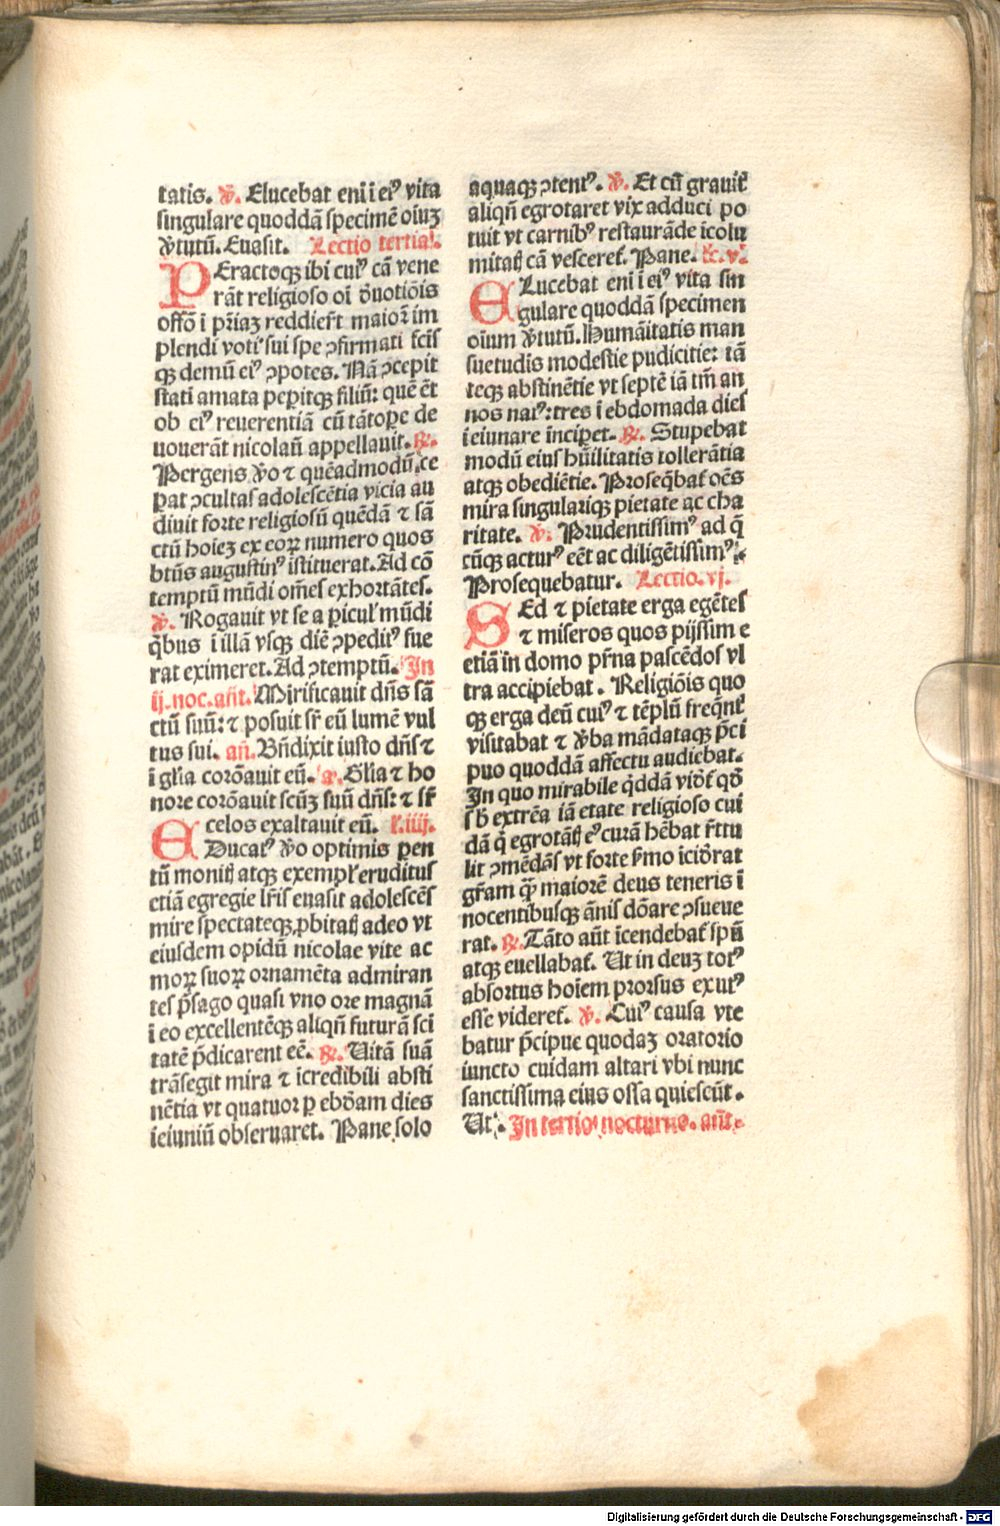 tatis. ℣. Elucebat eni̅ i̅ ei⁹ vita
singulare quodda̅ specime̅ oiuʒ
v̾tutu̅. Euasit. Lectio tertia.
PEractoqꝫ ibi cui⁹ ca̅ vene
ra̅t religioso oi̅ d̾uotio̅is
offo̅ i̅ pr̅iaʒ reddier̅t maiori̅ im
plendi voti sui spe ꝯfirmati fc̅is
qꝫ demu̅ ei⁹ ꝯpotes. Na̅ ꝯcepit
stati̅ amata peꝑitqꝫ filiu̅: que̅ et̅
ob ei⁹ reuerentia̅ cu̅ ta̅toꝑe de
uouera̅t nicolau̅ appellauit. ℟.
Pergens v̾o ⁊ que̅admodu̅ ce
ꝑat ꝯcultas adolesce̅tia vicia au
diuit forte religiosu̅ que̅da̅ ⁊ sa̅
ctu̅ hoieʒ ex eoꝝ numero quos
btu̅s augustin⁹ i̅stituerat. Ad co̅
temptu̅ mu̅di om̅es exhorta̅tes.
℣. Rogauit vt se a ꝑicul̕ mu̅di
q̅bus i̅ illa̅ vsqꝫ die̅ ꝯpedit⁹ fue
rat eximeret. Ad ꝯtemptu̅. In
ij. noc. an̅t. Mirificauit dn̅s sa̅
ctu̅ suu̅: ⁊ posuit sr̅ eu̅ lume̅ vul
tus sui. an̅. Bn̅dixit iusto dn̅s ⁊
i̅ glia coro̅auit eu̅. a̅. Glia ⁊ ho
nore coro̅auit scu̅ʒ suu̅ dn̅s: ⁊ sr̅
celos exaltauit eu̅. l̕. iiij.
EDucat⁹ v̾o optimis ꝑen
tu̅ monit̕ atqꝫ exempl̕ eruditus
etia̅ egregie lr̅is euasit adolesce̅s
mire spectateqꝫ ꝓbitat̕ adeo vt
eiusdem opidu̅ nicolae vite ac
moꝝ suoꝝ orname̅ta admiran
tes p̅sago quasi vno ore magna̅
i̅ eo excellente̅qꝫ aliqn̅ futura̅ sci
tate̅ p̅dicarent ee̅. ℟. Vita̅ sua̅
tra̅segit mira ⁊ i̅credibili absti
ne̅tia vt quatuor ꝑ ebdo̅am dies
ieiuniu̅ obseruaret. Pane solo
aquaqꝫ ꝯtent⁹. ℣. Et cu̅ grauit̕
aliqn̅ egrotaret vix adduci po
tuit vt carnib⁹ restaura̅de i̅colu
mitat̕ ca̅ vesceret̕. Pane. l̕c. v.
ELucebat eni̅ i̅ ei⁹ vita sin
gulare quodda̅ specimen
oium v̾tutu̅. Huma̅itatis man
suetudis modestie pudicitie: ta̅
teqꝫ abstine̅tie vt septe̅ ia̅ tm̅ an
nos nat⁹: tres i̅ ebdomada dies
ieiunare i̅ciꝑet. ℟. Stupebat
modu̅ eius hu̅ilitatis tollera̅tia
atqꝫ obedie̅tie. Proseq̅bat̕ oe̅s
mira singulariqꝫ pietate ac cha
ritate. ℣. Prudentissim⁹ ad q̅
cu̅qꝫ actur⁹ ee̅t ac dilige̅tissim⁹
Prosequebatur. Lectio. vj.
SEd ⁊ pietate erga ege̅tes
⁊ miseros quos pijssim e
etia̅ in domo pr̅na pasce̅dos vl
tra accipiebat. Religio̅is quo
qꝫ erga deu̅ cui⁹ ⁊ te̅plu̅ freq̅nt̕
visitabat ⁊ v̾ba ma̅dataqꝫ p̅ci
puo quodda̅ affectu audiebat.
In quo mirabile q̅dda̅ vid̾t̕ qd̾
s b̅ extre̅a ia̅ etate religioso cui
da̅ q̅ egrota̅t̕ e⁹ cura̅ he̅bat r̅ttu
lit ꝯme̅da̅s vt forte s̾mo i̅cid̾rat
gr̅am qꝫ̅ maiore̅ deus teneris i̅
nocentibusqꝫ a̅nis do̅are ꝯsueue
rat. ℟. Ta̅to au̅t i̅cendebat̕ spu̅
atqꝫ euellabat̕. Ut in deuʒ tot⁹
absortus hoi̅em prorsus exut⁹
esse videret̕. ℣. Cui⁹ causa vte
batur p̅cipue quodaʒ oratorio
iuncto cuidam altari vbi nunc
sanctissima eius ossa quiescu̅t.
Ut. In tertio nocturno. an̅t.
Digitalisierung gefördert durch die Deutsche Forschungsgemeinschaft - DFG